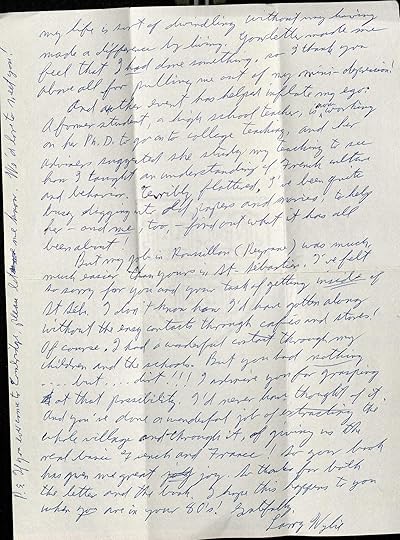 my life is sort of dwindling without my having
made a difference by living. Your letter made me
feel that I had done something, so I thank you
above all for pulling me out of my mini-depression!
And another event has helped inflate my ego:
A former student, a high school teacher, is now working
on her Ph.D. to go into college teaching, and her
advisers suggested she study my teaching to see
how I taught an understanding of French culture
and behavior. Terribly flattered, I've been quite
busy digging into old papers and movies to help
her - and me, too, - find out what it has all
been about!
But my job in Roussillon (Peyrane) was much,
much easier than yours in St. Sebastien. I've felt
so sorry for you and your task of getting inside of
St Seb. I don't know how I'd have gotten along
without the easy contacts through cafés and stores!
Of course, I had a wonderful contact through my
children and the schools. But you had nothing
.... but .... dirt!!! I admire you for grasping
at that possibility. I'd never have thought of it.
And you've done a wonderful job of extracting the
whole village and through it, of giving us the
real basic French and France! So your book
has given me great joy. So thanks for both
the letter and the book. I hope this happens to you
when you are in your 80's! Gratefully,
Larry Wylie
P.S. If you ever come to Cambridge, please let me know. We'd love to see you!